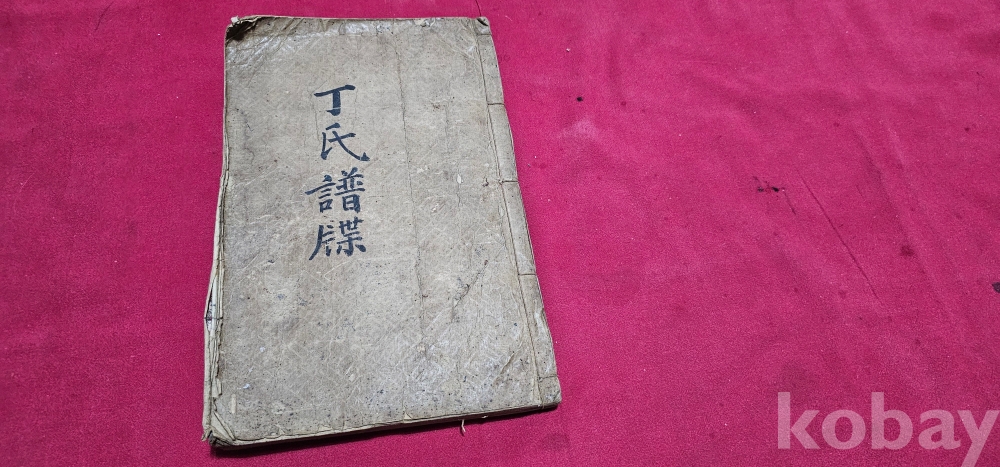 丁氏譜牒
kobay